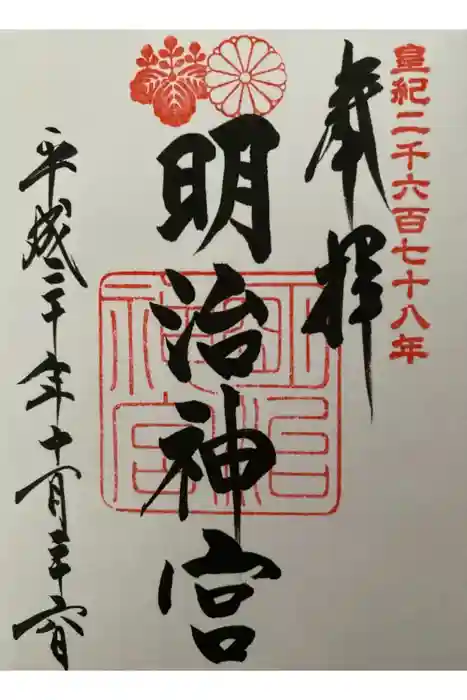 皇紀二千六百七十八年
奉拝
明治神宮
明治神宮
平成三十年十一月